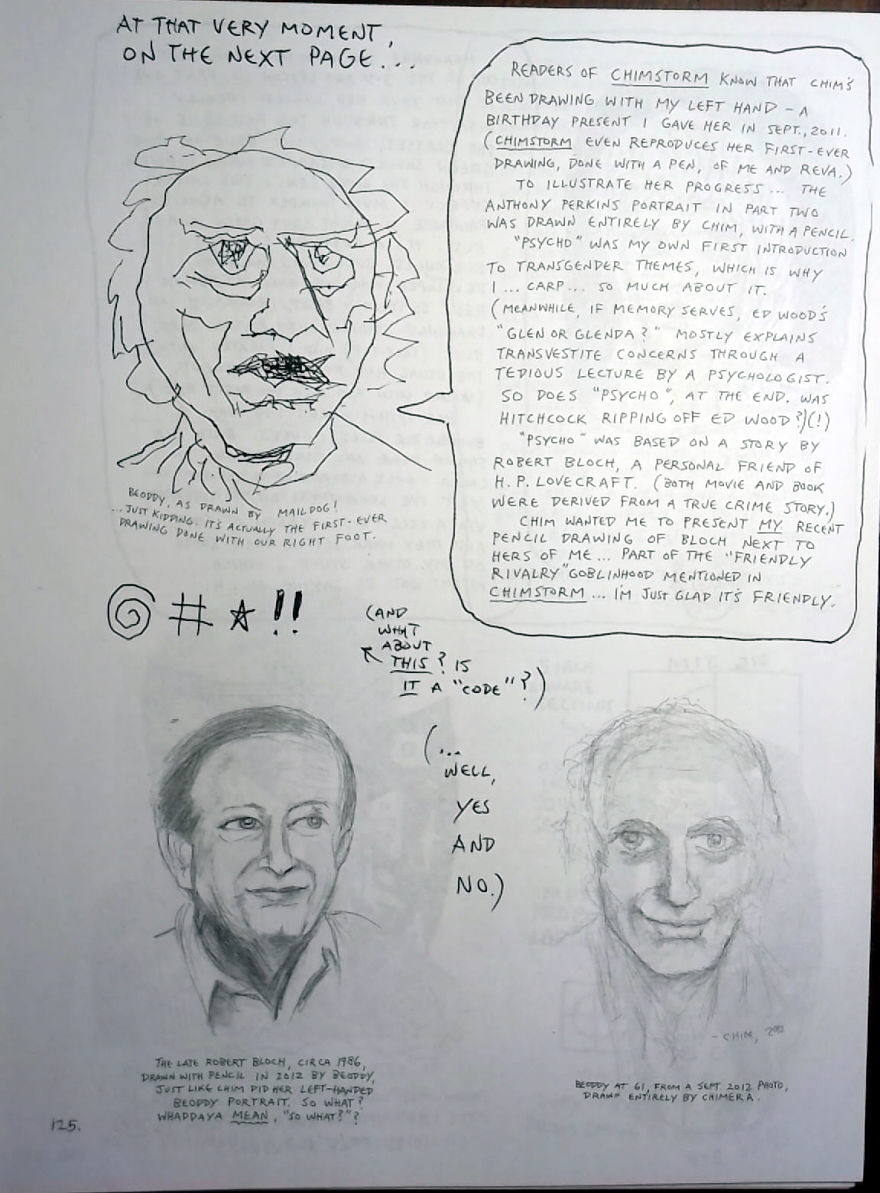 AT THAT VERY MOMENT,
ON THE NEXT PAGE...
READERS OF CHIMSTORM KNOW THAT CHIM'S
BEEN DRAWING WITH MY LEFT HAND – A
BIRTHDAY PRESENT I GAVE HER IN SEPT., 2011.
(CHIMSTORM EVEN REPRODUCES HER FIRST-EVER
DRAWING, DONE WITH A PEN, OF ME AND REVA.)
TO ILLUSTRATE HER PROGRESS... THE
ANTHONY PERKINS PORTRAIT IN PART TWO
WAS DRAWN ENTIRELY BY CHIM, WITH A PENCIL.
"PSYCHO" WAS MY OWN FIRST INTRODUCTION
TO TRANSGENDER THEMES, WHICH IS WHY
I... CARP... SO MUCH ABOUT IT.
(MEANWHILE, IF MEMORY SERVES, ED WOOD'S
"GLEN OR GLENDA?" MOSTLY EXPLAINS
TRANSVESTITE CONCERNS THROUGH A
TEDIOUS LECTURE BY A PSYCHOLOGIST.
SO DOES "PSYCHO", AT THE END. WAS
HITCHCOCK RIPPING OFF ED WOOD?)(!)
"PSYCHO" WAS BASED ON A STORY BY
ROBERT BLOCH, A PERSONAL FRIEND OF
H.P. LOVECRAFT. (BOTH MOVIE AND BOOK
WERE DERIVED FROM A TRUE CRIME STORY.)
CHIM WANTED ME TO PRESENT MY RECENT
PENCIL DRAWING OF BLOCH NEXT TO
HERS OF ME... PART OF THE "FRIENDLY
RIVALRY" GOBLINHOOD MENTIONED IN
CHIMSTORM... I'M JUST GLAD IT'S FRIENDLY.
BEODDY, AS DRAWN BY MAILDOG!
...JUST KIDDING. IT'S ACTUALLY THE FIRST-EVER
DRAWING DONE WITH OUR RIGHT FOOT.
@#★!!
(AND
WHAT
ABOUT
THIS? IS
IT A "CODE"?)
(...
WELL,
YES
AND
NO.)
- CHIM, 2012
THE LATE ROBERT BLOCH, CIRCA 1986,
DRAWN WITH PENCIL IN 2012 BY BEODDY,
JUST LIKE CHIM DID HER LEFT-HANDED
BEODDY PORTRAIT. SO WHAT?
WHADDAYA MEAN, "SO WHAT?"?
BEODDY AT 61, FROM A SEPT. 2012 PHOTO,
DRAWN ENTIRELY BY CHIMERA.
125.